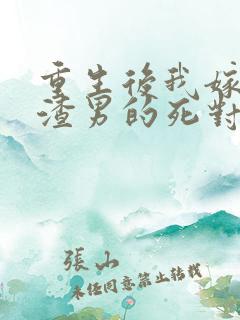 重生後我嫁
渣男的死對
張山
未经同意禁止转载